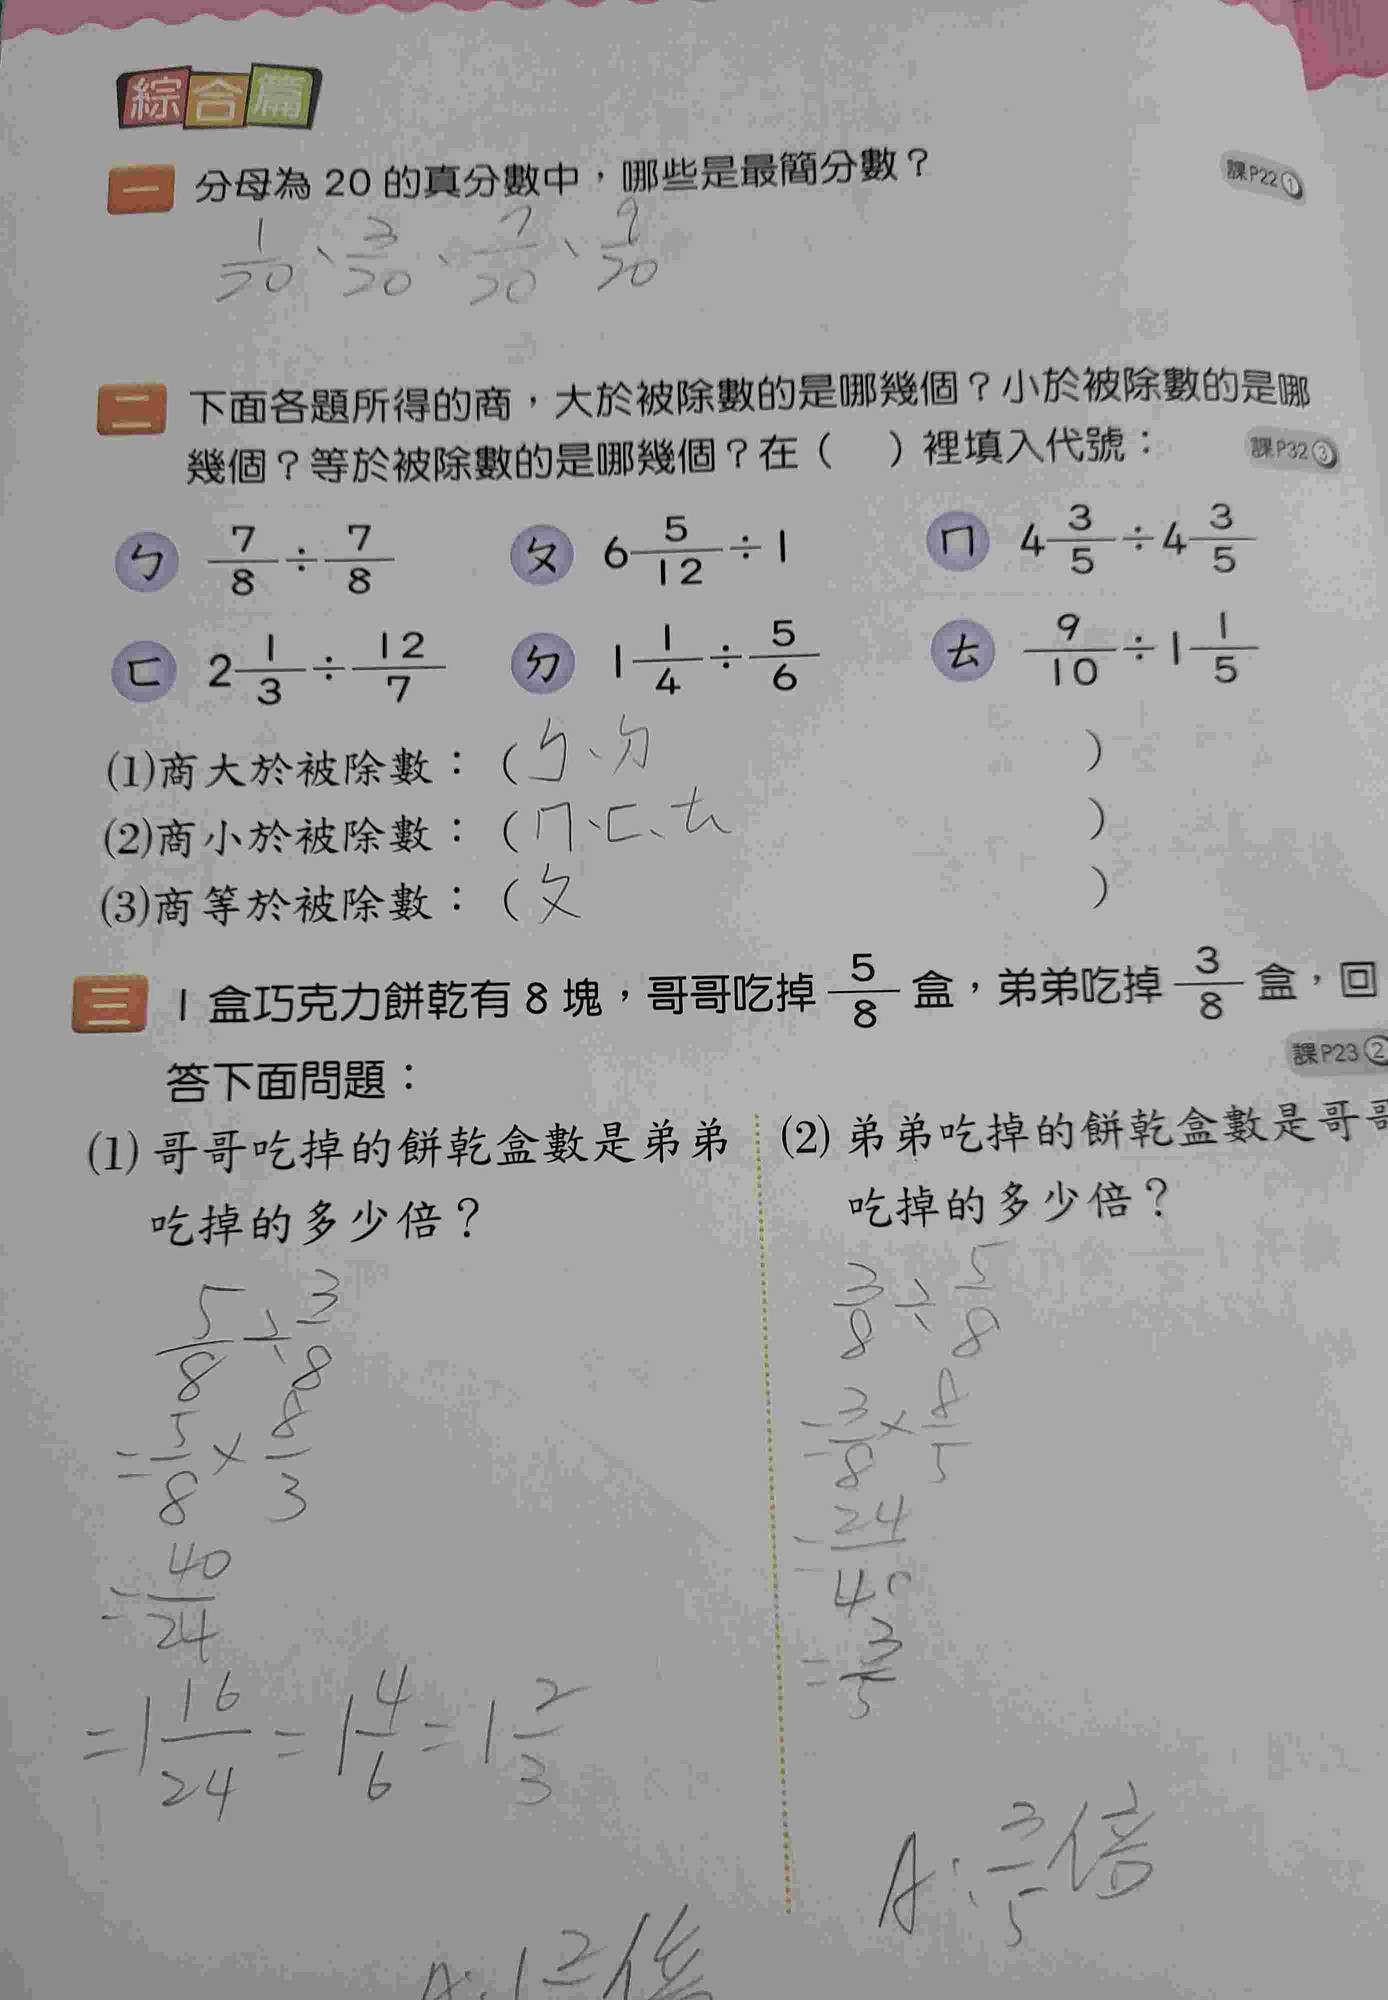 綜合篇
一 分母為 20 的真分數中，哪些是最簡分數？ 課P22①
1/20、3/20、7/20、9/20
二 下面各題所得的商，大於被除數的是哪幾個？小於被除數的是哪
幾個？等於被除數的是哪幾個？在（ ）裡填入代號： 課P32③
ㄅ 7/8 ÷ 7/8 ㄆ 6 5/12 ÷ 1 ㄇ 4 3/5 ÷ 4 3/5
ㄈ 2 1/3 ÷ 12/7 ㄉ 1 1/4 ÷ 5/6 ㄊ 9/10 ÷ 1 1/5
(1)商大於被除數：（ㄅ、ㄉ ）
(2)商小於被除數：（ㄇ、ㄈ、ㄊ ）
(3)商等於被除數：（ㄆ ）
三 1 盒巧克力餅乾有 8 塊，哥哥吃掉 5/8 盒，弟弟吃掉 3/8 盒，回
答下面問題： 課P23②
(1) 哥哥吃掉的餅乾盒數是弟弟
吃掉的多少倍？
5/8 ÷ 3/8
= 5/8 × 8/3
= 40/24
= 1 16/24 = 1 4/6 = 1 2/3
(2) 弟弟吃掉的餅乾盒數是哥哥
吃掉的多少倍？
3/8 ÷ 5/8
= 3/8 × 8/5
= 24/40
= 3/5
A: 3/5 倍